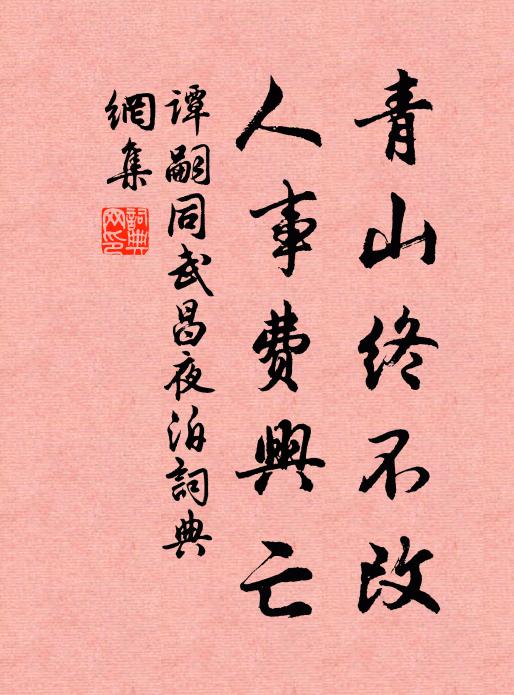 青山終不改
人事費興亡
譚嗣同武昌夜泊詞典
網集
詞典
网印